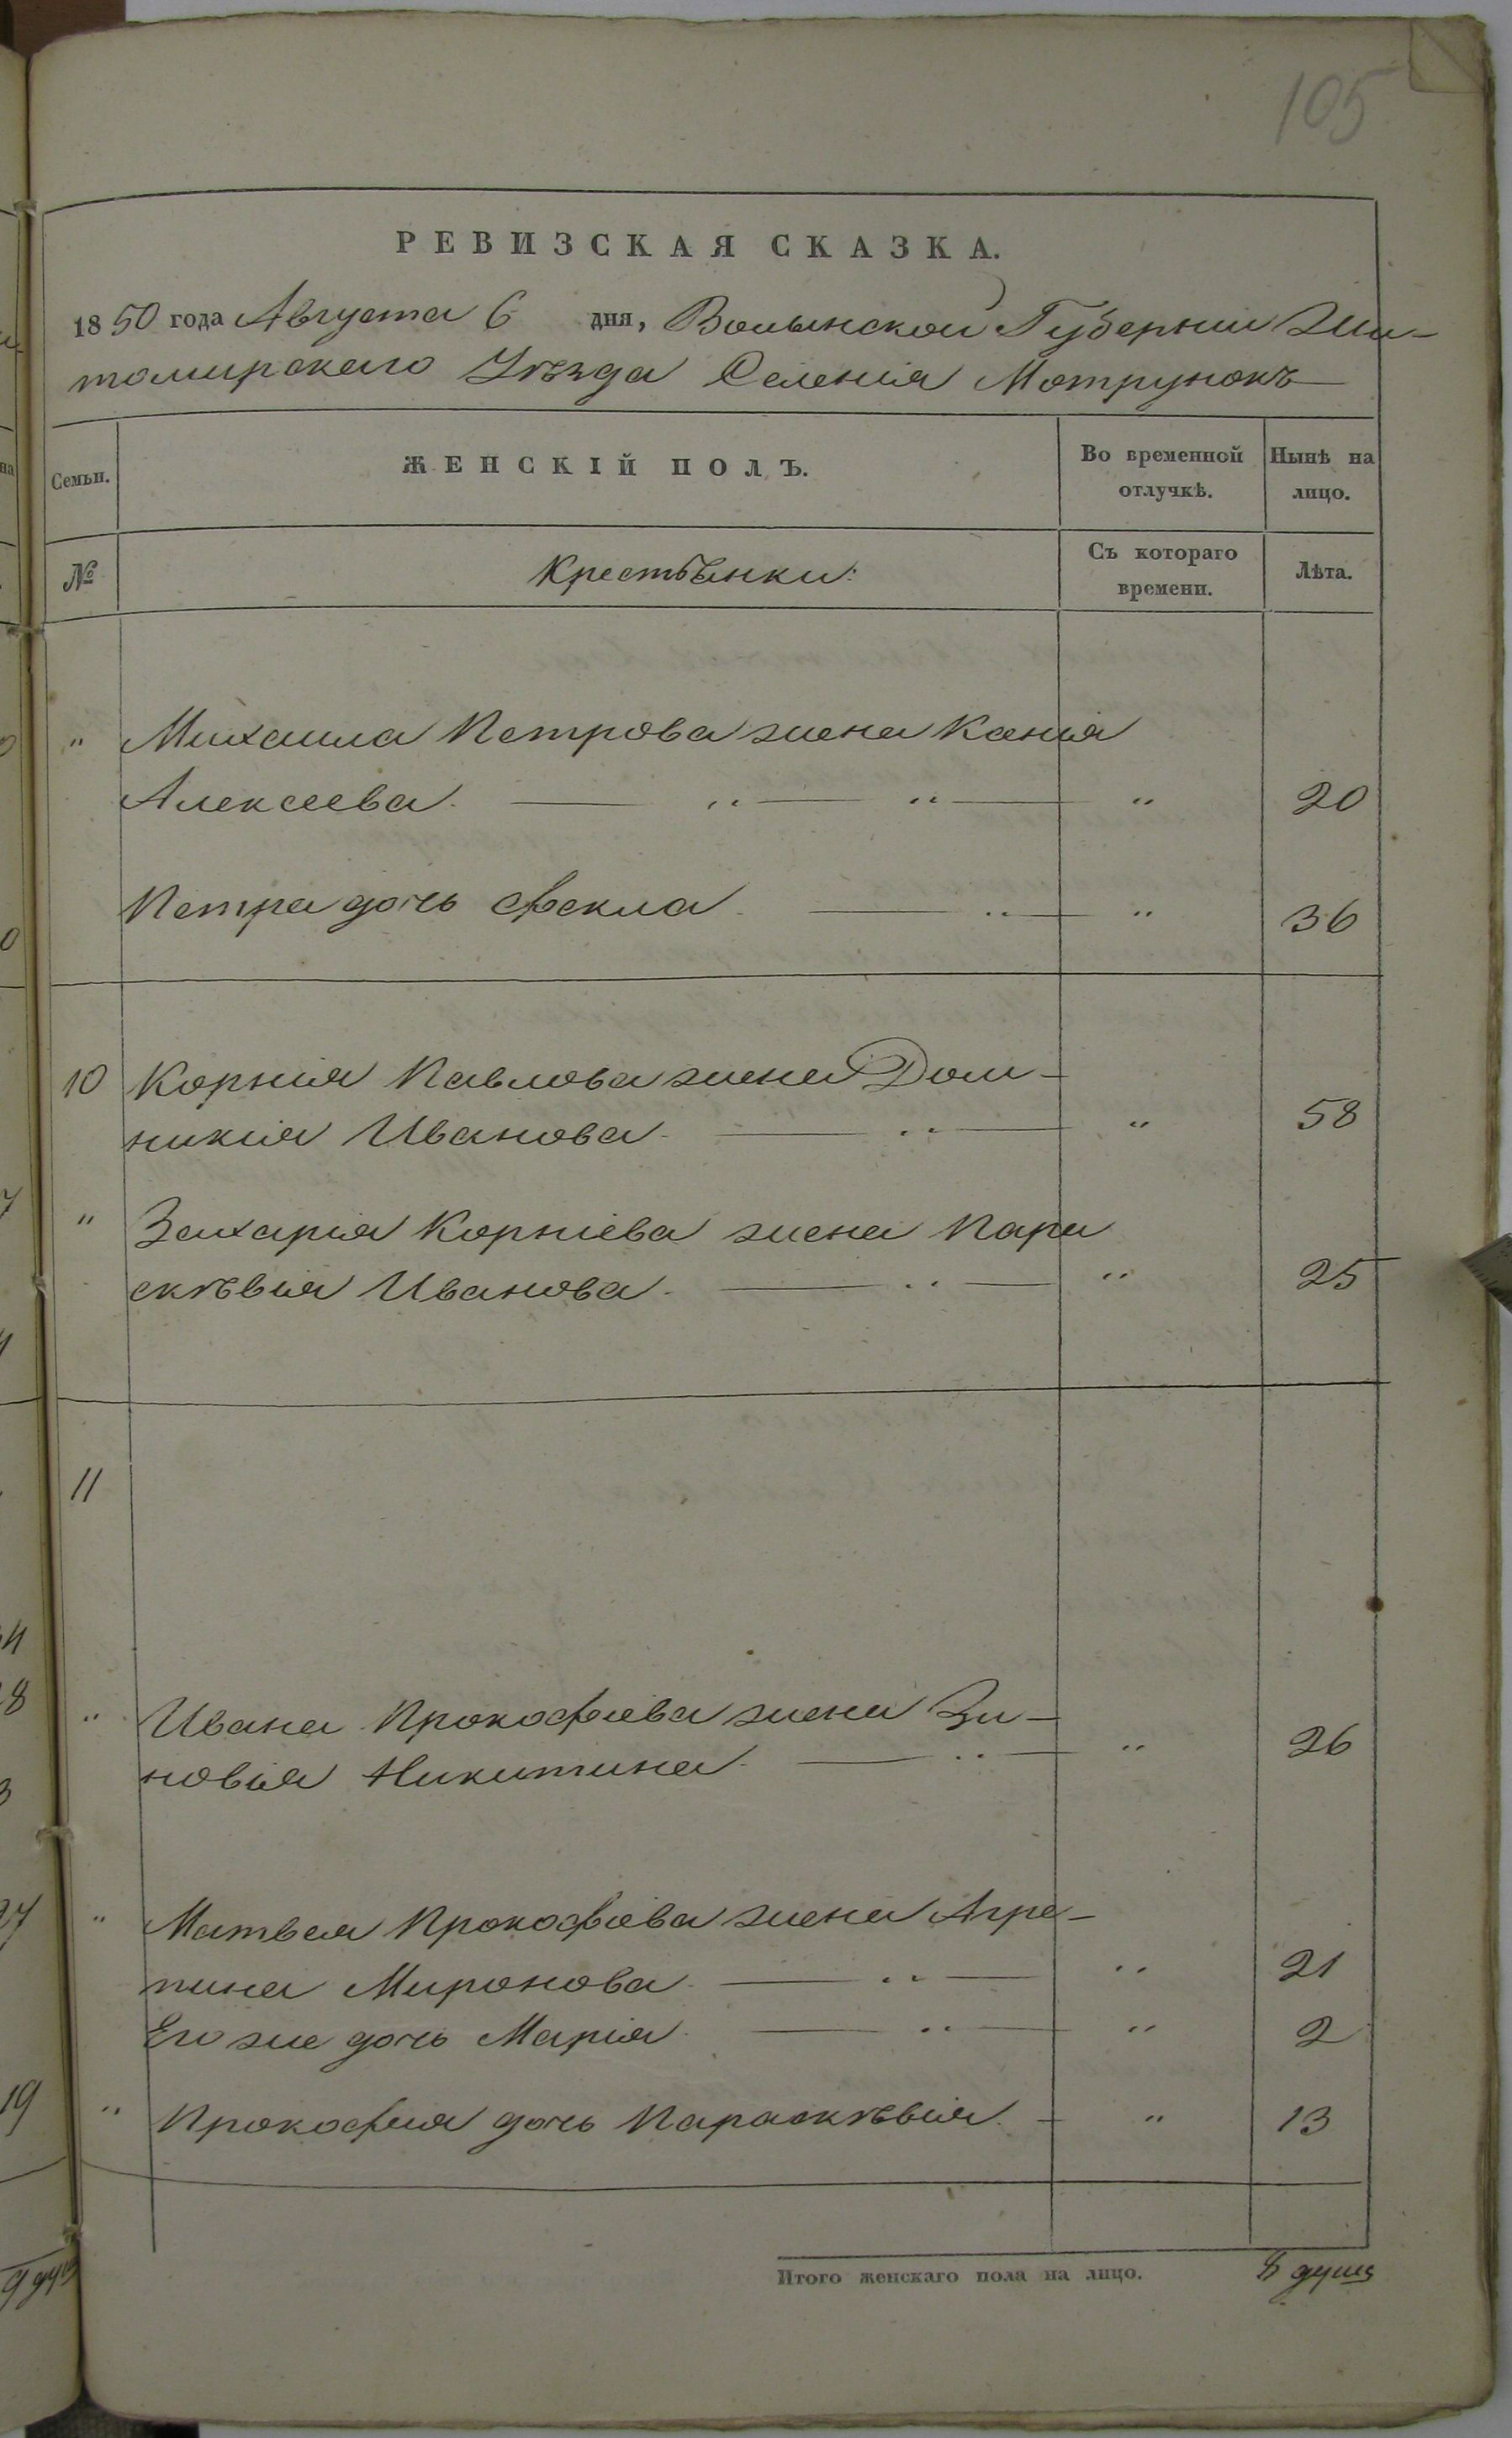 105
РЕВИЗСКАЯ СКАЗКА.
1850 года Августа 6 дня, Волынской Губерніи Жи-
томирскаго Уѣзда Селенія Мотрунокъ
Семьи.
ЖЕНСКІЙ ПОЛЪ.
Во временной отлучкѣ.
Нынѣ на лицо.
№
Крестьянки:
Съ котораго времени.
Лѣта.
" Михаила Петрова жена Ксенія
Алексеева. — " — " — " 20
Петра дочь Фекла. — " — " 36
10 Корнія Павлова жена Дом-
никія Иванова. — " — " 58
" Захарія Корніева жена Пара
скѣвія Иванова. — " — " 25
11
" Ивана Прокофіева жена Зи-
новія Никитина. — " — " 26
" Матвея Прокофіева жена Агре-
пина Миронова. — " — " 21
Его же дочь Марія. — " — " 2
" Прокофія дочь Параскѣвія. — " 13
Итого женскаго пола на лицо. 8 душъ